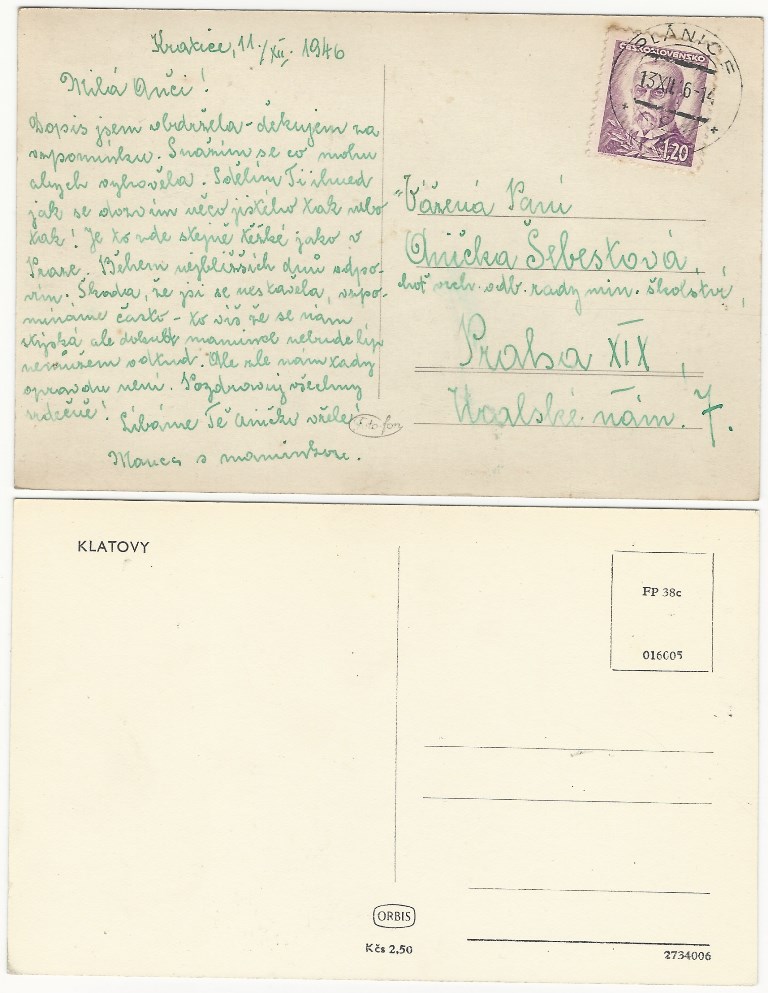 Kratice, 11./XII. 1946
Milá Anči!
Dopis jsem obdržela - děkujem za
vzpomínku. Snažím se co mohu
abych vyhověla. Sdělím Ti ihned
jak se dozvím něco jistého tak nebo
tak! Je to zde stejně těžké jako v
Praze. Během nejbližších dnů odpo-
vím. Škoda, že jsi se nestavěla, vzpo-
mínáme často - to víš že se nám
stýská ale dokud maminol nebude líp
nemůžem odtud. Ale zle nám tady
opravdu není. Pozdravuj všechny
srdečně! Líbáme Tě Aničko vřele!
s maminkou.
ČESKOSLOVENSKO
1,20
PLÁNICE
13.XII.46-14
Vážená Paní
Anička Šebestová,
choť vrch. odb. rady min. školství,
Praha XIX,
Uralské nám. 7.
KLATOVY
FP 38c
016005
ORBIS
Kčs 2,50
2734006